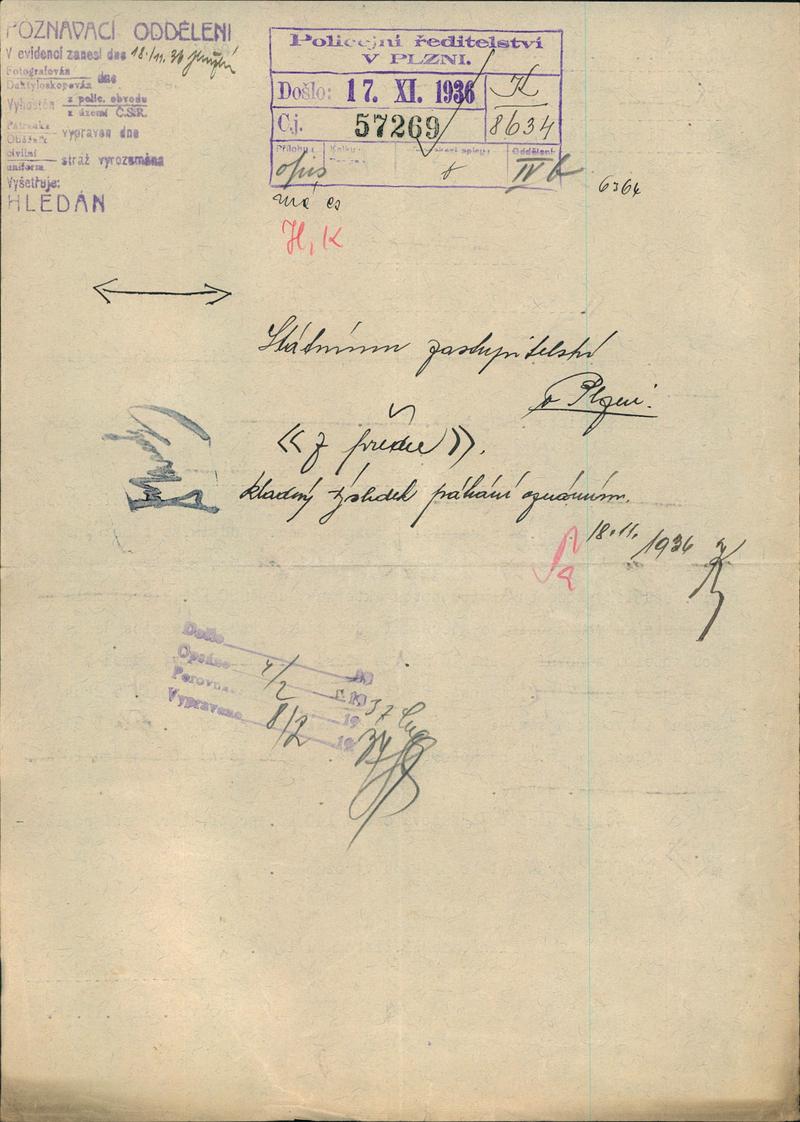 POZNÁVACÍ ODDĚLENÍ
V evidenci zanesl dne 18./11. 36
Fotografován
Daktyloskopován dne
Vyhoštěn z polic. obvodu
z území Č.S.R.
Pátranka
Oběžník vypraven dne
civilní
uniform. stráž vyrozuměna
Vyšetřuje:
HLEDÁN
Policejní ředitelství
V PLZNI.
Došlo: 17. XI. 1936 K
Čj. 57269 8634
Přílohy: Kolky: Oddělení
opis IV b
6364
má es
H, K
Státnímu zastupitelství
v Plzni.
« z předu ».
kladný výsledek pátrání oznámím.
18.11. 1936
Došlo 19
Opsáno 4/2 19 37
Porovn. 19
Vypraveno 8/2 19 37